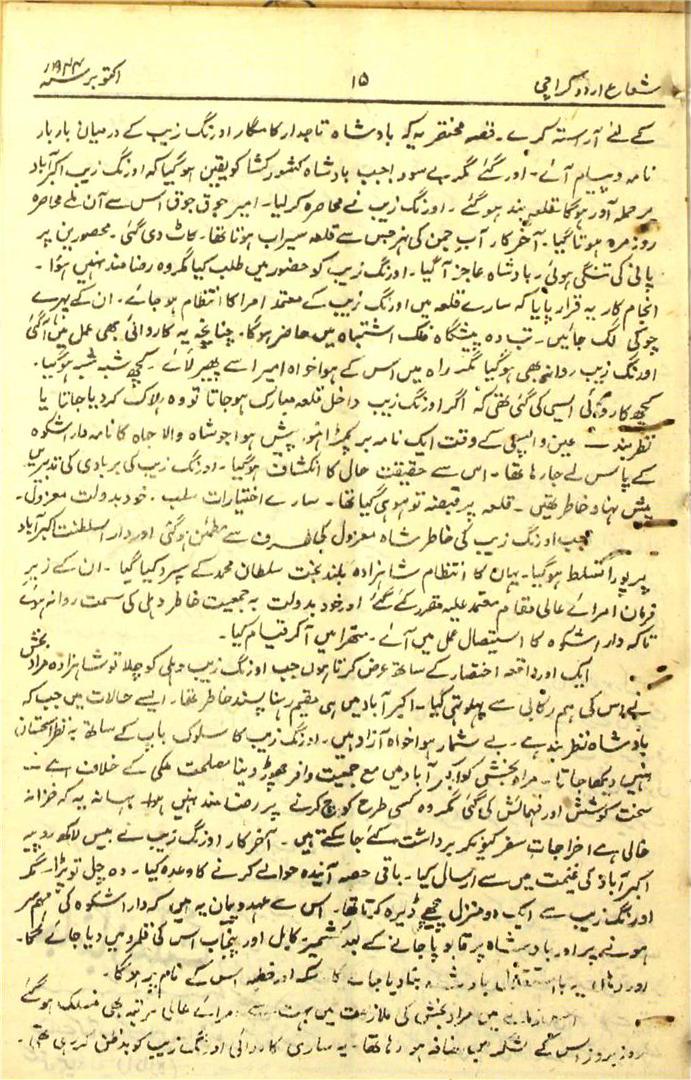 شعاع اردو کراچی ۱۵ اکتوبر سنہ ۱۹۴۴ء
کے لئے آرستہ کرے۔ قصہ مختصر یہ کہ بادشاہ تاجدار کامگار اورنگ زیب کے درمیان بار بار
نامہ و پیام آئے۔ اور گئے مگر بے سود۔ جب بادشاہ کشور کشا کو یقین ہوگیا کہ اورنگ زیب اکبرآباد
پر حملہ آور ہوگا قلعہ بند ہوگئے۔ اورنگ زیب نے محاصرہ کرلیا۔ امیر جوق جوق اس سے آن ملے محاصرہ
روز مرہ ہوتا گیا۔ آخر کار آب جمن کی نہر جس سے قلعہ سیراب ہوتا تھا۔ کاٹ دی گئی۔ محصورین پر
پانی کی تنگی ہوئی۔ بادشاہ عاجز آگیا۔ اورنگ زیب کو حضور میں طلب کیا مگر وہ رضامند نہیں ہوا۔
انجام کار یہ قرار پایا کہ سارے قلعہ میں اورنگ زیب کے معتمد امرا کا انتظام ہوجائے۔ ان کے پہرے
چوکی لگ جائیں۔ تب وہ پیشگاہ فلک اشتباہ میں حاضر ہوگا۔ چنانچہ یہ کاروائی بھی عمل میں آگئی
اورنگ زیب روانہ بھی ہوگیا مگر راہ میں اس کے ہوا خواہ امیر اسے پھیر لائے۔ کچھ شبہ شبہ ہوگیا۔
کچھ کاروائی ایسی کی گئی تھی کہ اگر اورنگ زیب داخل قلعہ مبارک ہوجاتا تو وہ ہلاک کردیا جاتا یا
نظر بند۔ عین واپسی کے وقت ایک نامہ بر پکڑا ہوا پیش ہوا جو شاہ والا جاہ کا نامہ دارا شکوہ
کے پاس لے جارہا تھا۔ اس سے حقیقت حال کا انکشاف ہوگیا۔ اورنگ زیب کی بربادی کی تدبیریں
پیش نہاد خاطر تھیں۔ قلعہ پر قبضہ تو ہو ہی گیا تھا۔ سارے اختیارات سلب۔ خود بدولت معزول۔
جب اورنگ زیب کی خاطر شاہ معزول کی طرف سے مطمئن ہوگئی اور دارالسلطنت اکبرآباد
پر پورا تسلط ہوگیا۔ یہاں کا انتظام شاہزادہ بلند بخت سلطان محمد کے سپرد کیا گیا۔ ان کے زیر
فرمان امرائے عالی مقام معتمد علیہ مقرر کئے گئے اور خود بدولت بہ جمعیت خاطر دہلی کی سمت روانہ ہوئے
تاکہ دارا شکوہ کا استیصال عمل میں آئے۔ متھرا میں آکر قیام کیا۔
ایک اور واقعہ اختصار کے ساتھ عرض کرتا ہوں جب اورنگ زیب دہلی کو چلا تو شاہزادہ مراد بخش
نے اس کی ہم رکابی سے پہلو تہی کیا۔ اکبرآباد میں ہی مقیم رہنا پسند خاطر تھا۔ ایسے حالات میں جب کہ
بادشاہ نظر بند ہے۔ بے شمار ہوا خواہ آزاد ہیں۔ اورنگ زیب کا سلوک باپ کے ساتھ بہ نظر استحسان
نہیں دیکھا جاتا۔ مراد بخش کو اکبرآباد میں مع جمعیت وافر چھوڑ دینا مصلحت ملکی کے خلاف ہے
سخت کوشش اور فہمائش کی گئی مگر وہ کسی طرح کوچ کرنے پر رضامند نہیں ہوا۔ بہانہ یہ کہ خزانہ
خالی ہے اخراجات سفر کیونکر برداشت کئے جاسکتے ہیں۔ آخر کار اورنگ زیب نے بیس لاکھ روپیہ
اکبرآباد کی غنیمت میں سے ارسال کیا۔ باقی حصہ آئندہ حوالے کرنے کا وعدہ کیا۔ وہ چل تو پڑا۔ مگر
اورنگ زیب سے ایک دو منزل پیچھے ڈیرہ کرتا تھا۔ اس سے عہد و پیمان یہ ہیں کہ دارا شکوہ کی مہم سر
ہونے پر اور بادشاہ پر قابو پاجانے کے بعد کشمیر کابل اور پنجاب اس کی قلمرو میں دیا جائے گا۔
اور وہاں یہ با استقلال بادشاہ بنادیا جائے گا۔ سکہ اور خطبہ اس کے نام پر ہوگا۔
اس زمانے میں مراد بخش کی ملازمت میں بہت سے امرائے عالی مرتبہ بھی منسلک ہوگئے
روز بروز اس کے لشکر میں اضافہ ہورہا تھا۔ یہ ساری کاروائی اورنگ زیب کو بدظن کررہی تھی۔